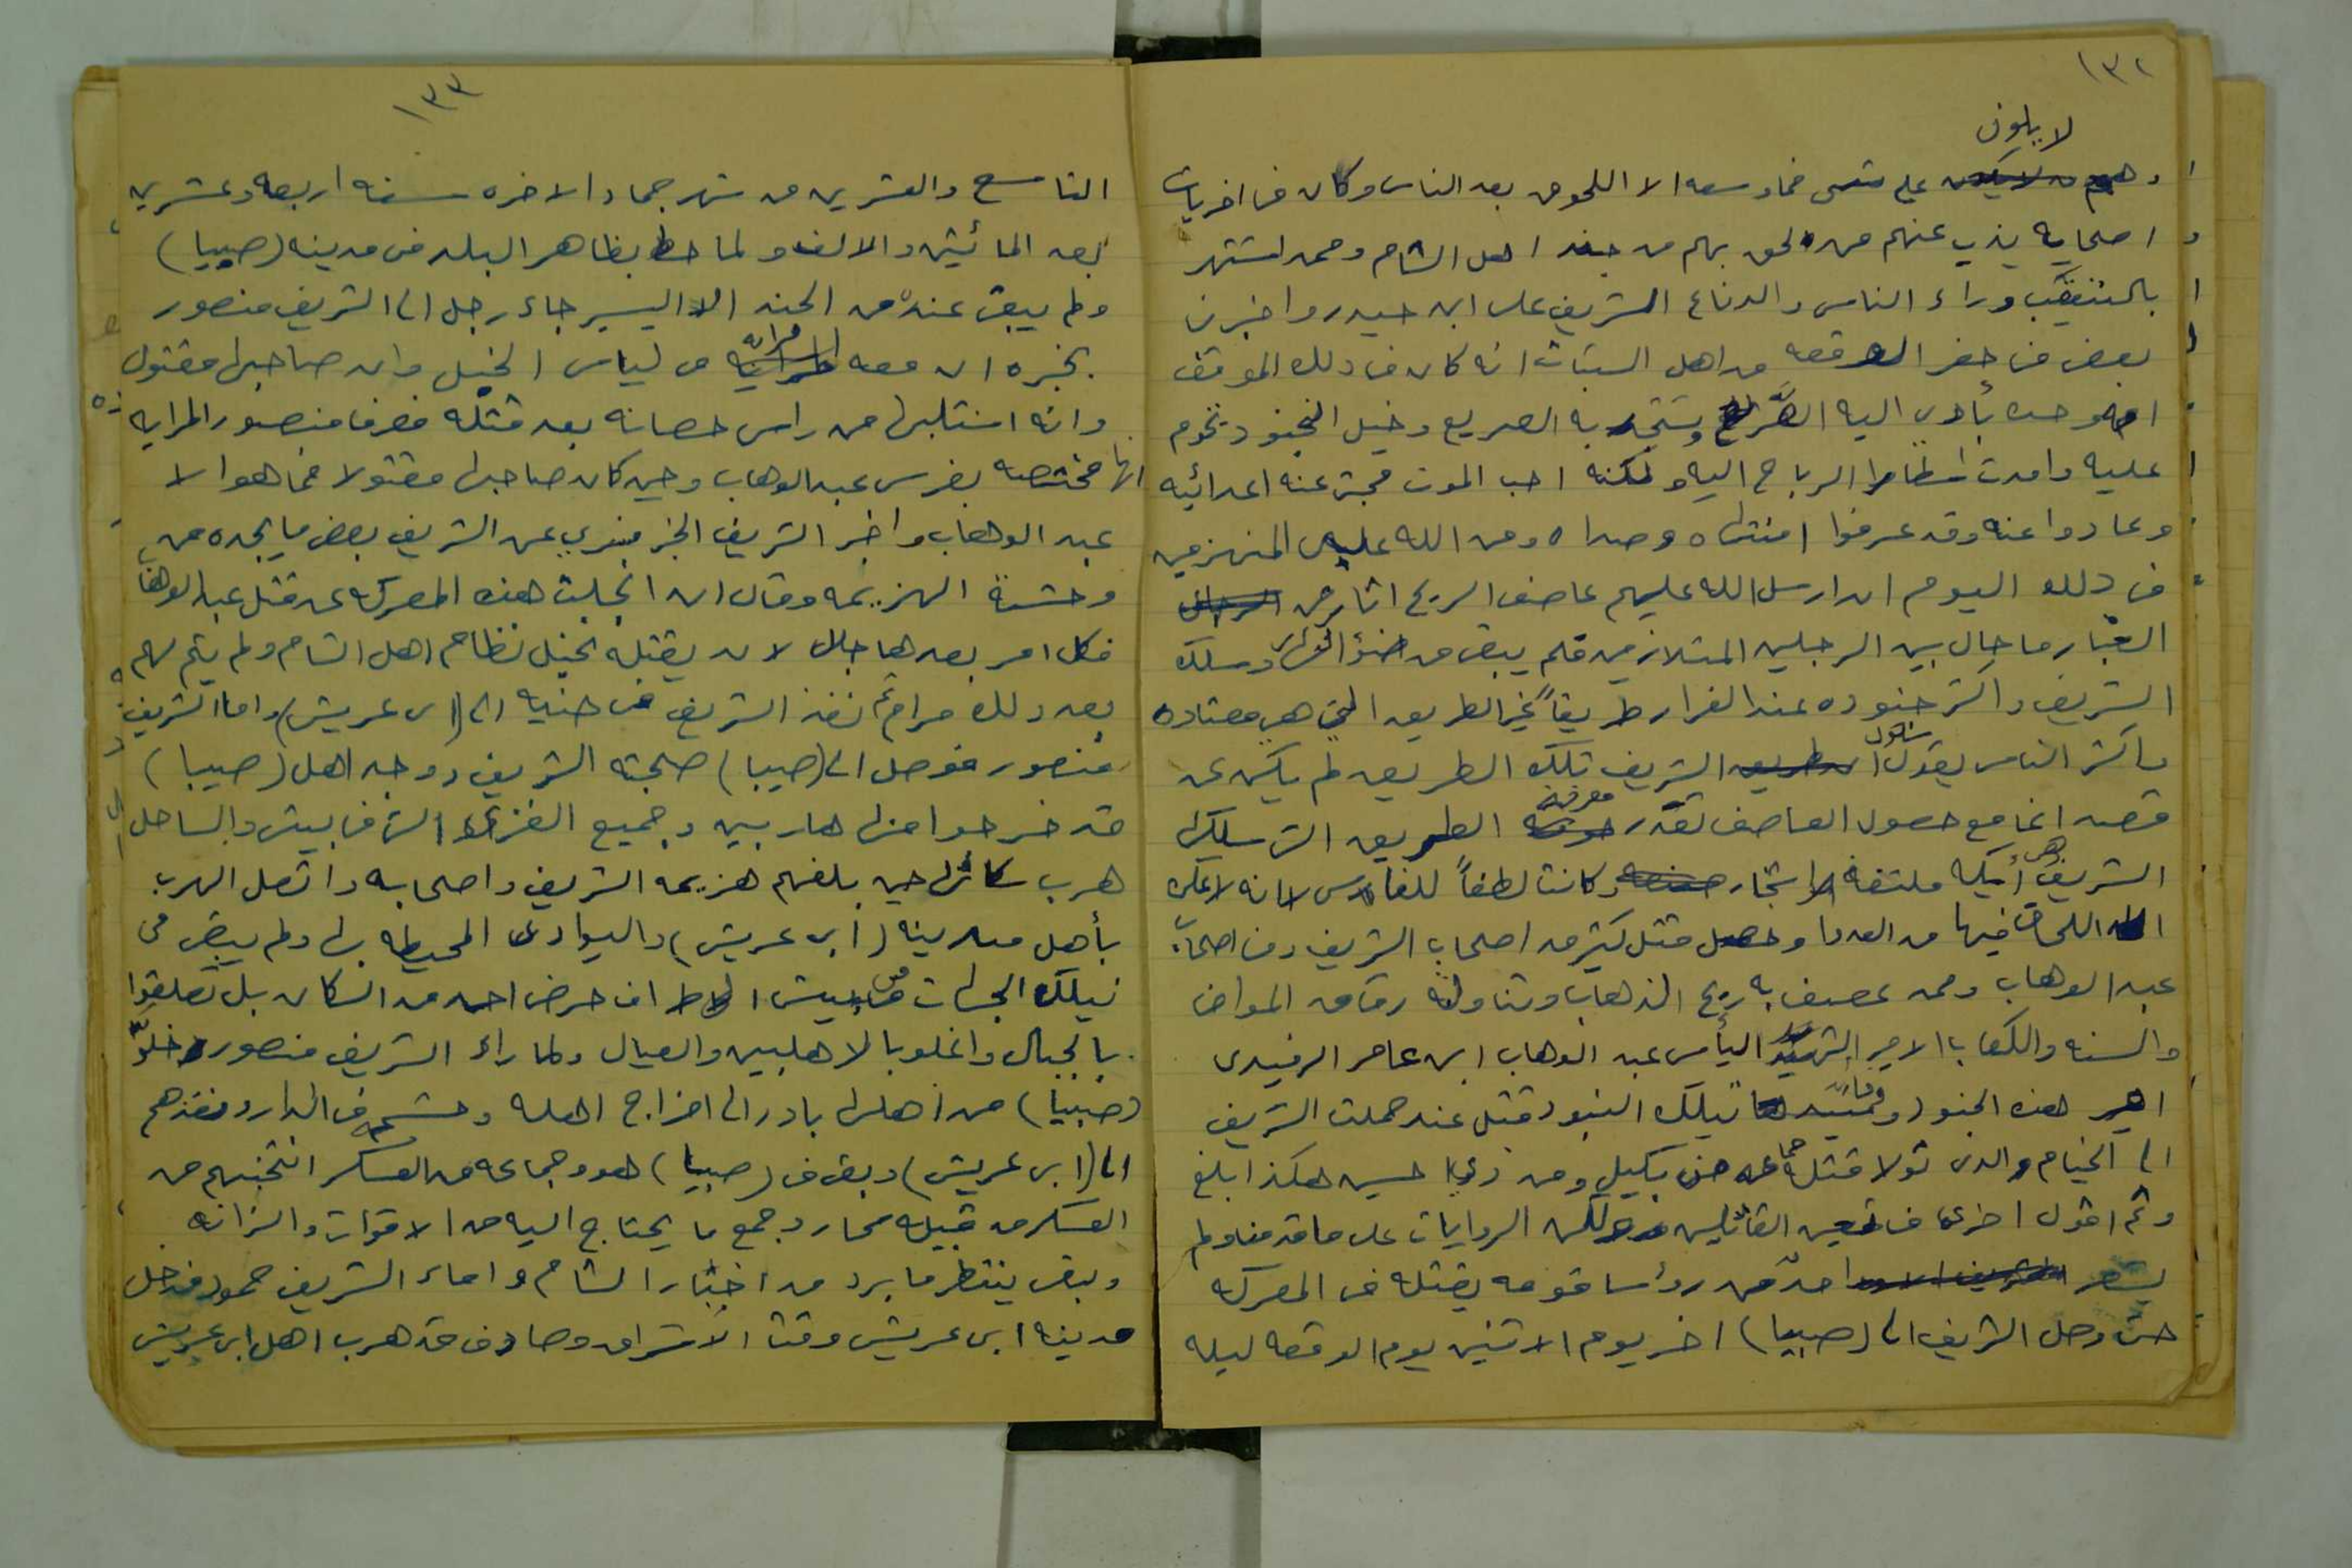 ١٣٢
لا يلون
وهم على شى فما وسعه الا اللحوق بعد الناس وكان فى اخريات
اصحابه يذب عنهم من لحق بهم من جند اهل الشام وممن اشتهر
بالتنقب وراء الناس والدفاع الشريف على ابن حيدر واخبرنى
بعض من حضر الوقعه من اهل الثبات انه كان فى ذلك الموقف
وحده يأوى اليه ويستنجد به الصريع وخيل النجود تحوم
عليه وامدت الرماح اليه ولكنه احب الموت فجبن عنه اعدائيه
وعادوا عنه وقد عرفوا منتهاه ومداه ومن الله على المنهزمين
فى ذلك اليوم ان ارسل الله عليهم عاصف الريح اثار من
الغبار ما حال بين الرجلين المتلازمين فلم يبقى من ضؤ وسلك
الشريف واكثر جنوده عند الفرار طريقاً غير الطريق التى هى معتاده
واكثر الناس يقول ان سلوك الشريف تلك الطريق لم يكن عن
قصد انما مع حصول العاصف تعذر معرفة الطريق التى سلكها
الشريف وهى أيكه ملتفه الاشجار وكانت لطفاً للفارس لانه لا يمكن
اللحاق فيها من العدو وحصل قتل كثير من اصحاب الشريف ومن اصحاب
عبد الوهاب وممن عصف به ريح الذهاب وتناولته رقاق المواضى
والسنه والكعاب الامير الشهيد البأس عبد الوهاب ابن عامر الرفيدى
امير هذه الجنود وقائد تيلك البنود قتل عند حملت الشريف
الى الخيام والذى تولا قتله جماعه من بكيل ومن ذوى حسين هكذا ابلغ
وثم اقول اخرى فى تعيين القاتلين ولكن الروايات على ما قدمنا ولم
يشعر احد من رؤسا قومه بقتله فى المعركه
حتى وصل الشريف الى (صبيا) اخر يوم الاثنين يوم الوقعه ليله
١٣٣
التاسع والعشرين من شهر جماد الاخره سنه اربعه وعشرين
بعد المائيتين والالف ولما حط بظاهر البلد فى مدينه (صبيا)
ولم يبقى عنده من الجند الا اليسير جاء رجل الى الشريف منصور
يخبره ان معه مرايه من لباس الخيل وان صاحبها مقتول
وانه استلبها من راس حصانه بعد قتله فعرف منصور المرايه
انها مختصه بفرس عبد الوهاب وحين كان صاحبها مقتولا فما هوا الا
عبد الوهاب واخبر الشريف الخبر فسري عن الشريف بعض ما يجده من
وحشة الهزيمه وقال ان انجلت هذه المعركه عن قتل عبد الوهاب
فكل امر بعدها جلل لان بقتله يختل نظام اهل الشام ولم يتم لهم
بعد ذلك مرام ثم نفذ الشريف من حينه الى (ابى عريش) واما الشريف
منصور فوصل الى (صبيا) صحبته الشريف ووجد اهل (صبيا)
قد خرجوا منها هاربين وجميع القرى التى فى بيش والساحل
هرب سكانها حين بلغهم هزيمه الشريف واصحابه واتصل الهرب
بأهل مدينه (ابى عريش) والبوادى المحيطه بها ولم يبقى فى
تيلك الجهات من بيش الى اطراف حرض احد من السكان بل تعلقوا
بالجبال وانخلوبا الاهليين والعيال ولما راء الشريف منصور خلوّ
(صبيا) من اهلها بادر الى اخراج اهله وحشمه فى الدار ونفذهم
الى (ابى عريش) وبقى فى (صبيا) هو وجماعه من العسكر انتخبهم من
العسكر من قبيله سحار وجمع ما يحتاج اليه من الاقوات والزانه
وبقى ينتظر ما يرد من اخبار الشام واماء الشريف حمود فدخل
مدينه ابى عريش وقت الاشراق وصادف قد هرب اهل ابى عريش